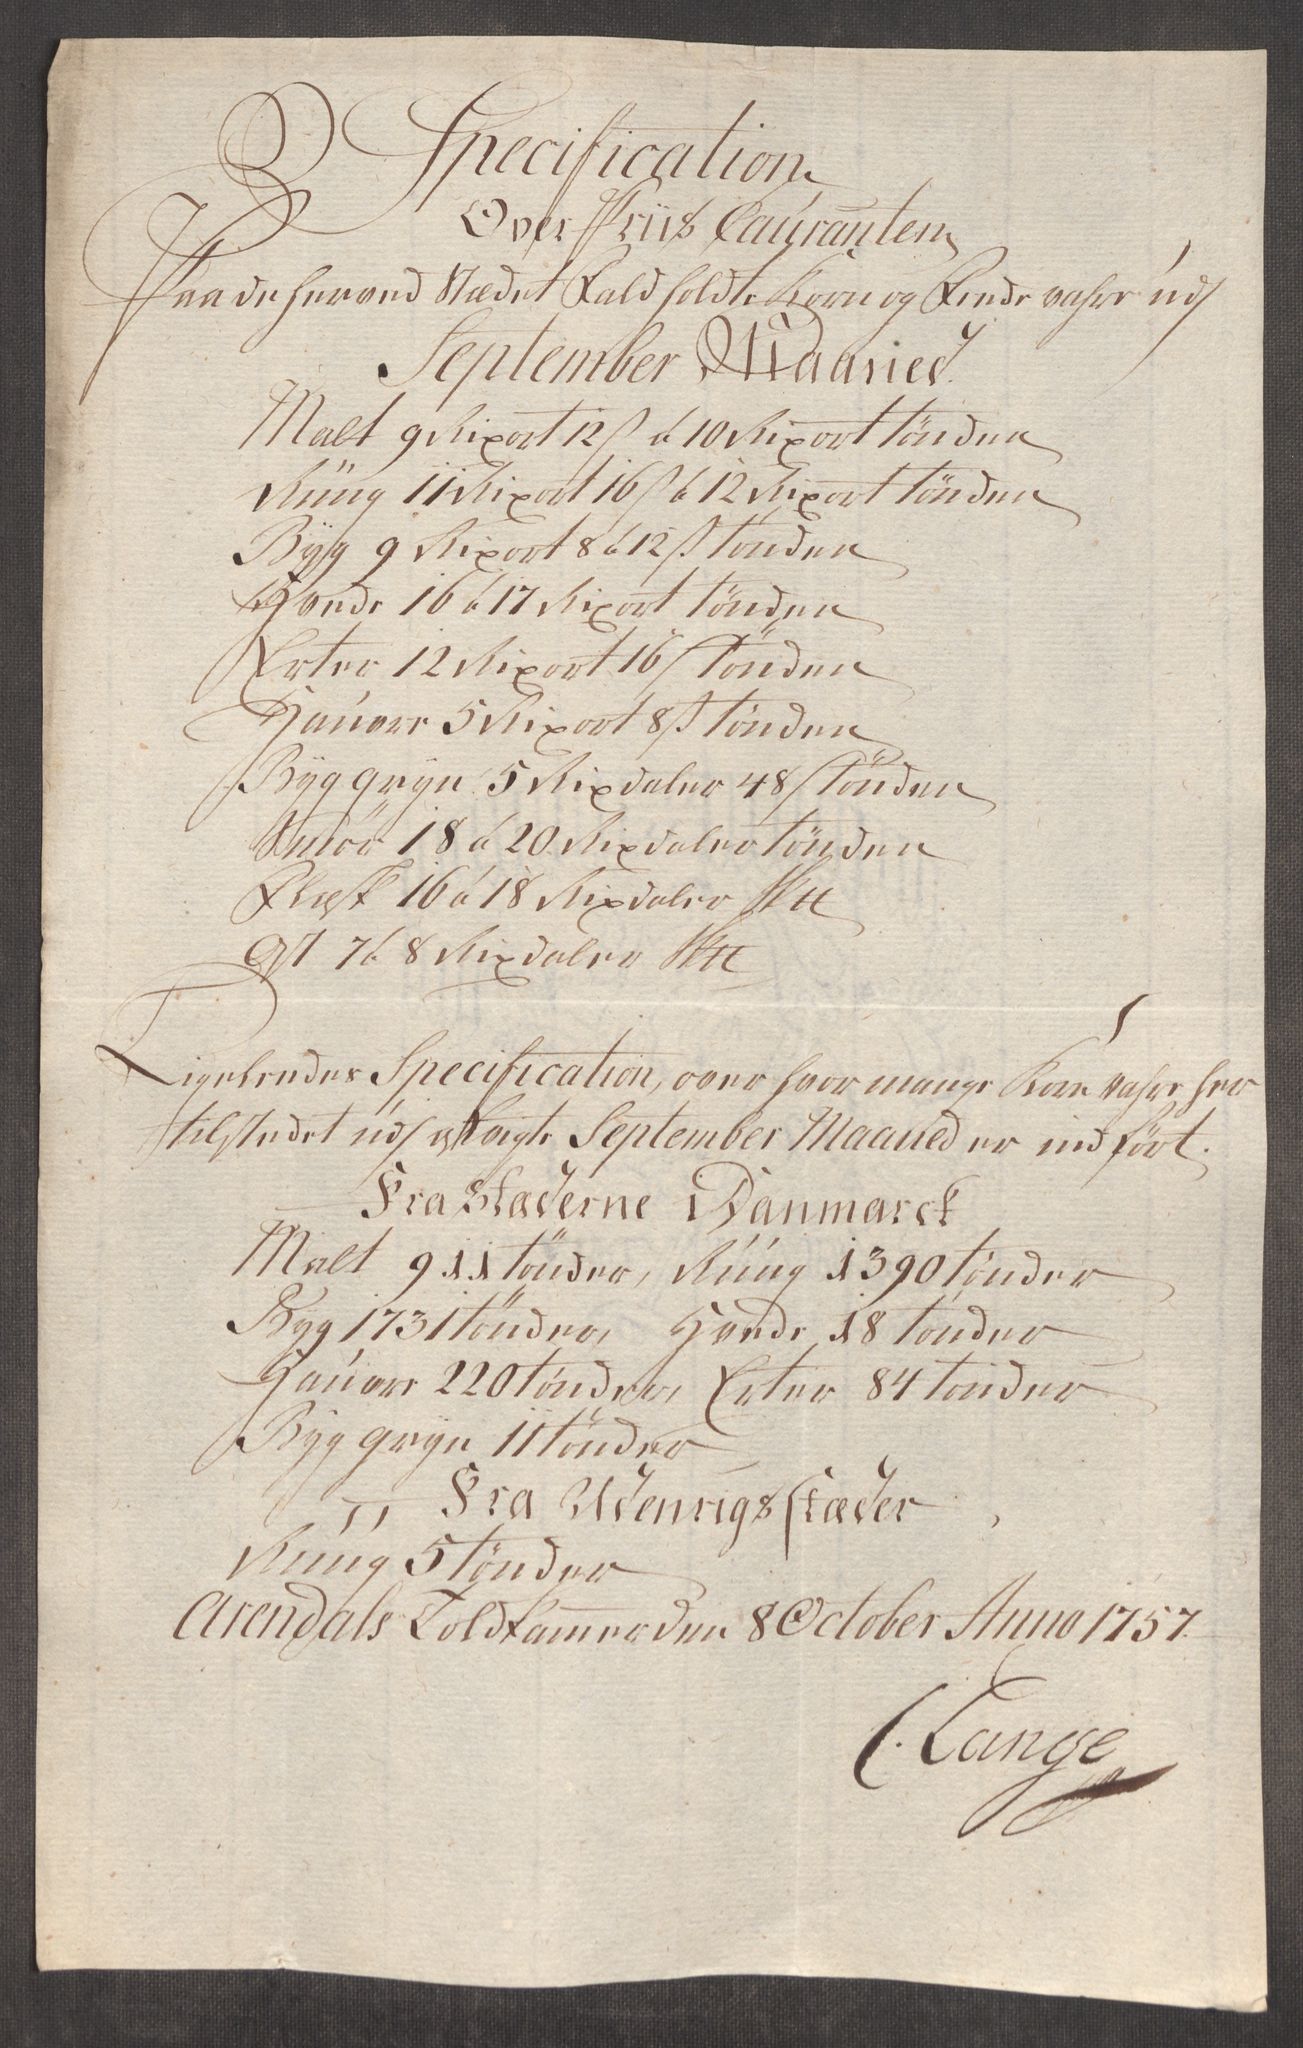 Specification
Over Priis Couranten
Paa de her ved Stædet Faldholdte Korn og Fede vahre udj
September Maaned
Malt 9 Rixort 12 s à 10 Rixort tönden
Rüug 11 Rixort 16 s à 12 Rixort tönden
Byg 9 Rixort 8 à 12 s tönden
Hvede 16 à 17 Rixort tönden
Erter 12 Rixort 16 s tönden
Haúvre 5 Rixort 8 s tönden
Byg gryn 5 Rixdaler 48 s tönden
Smör 18 à 20 Rixdaler tönden
Flæsk 16 à 18 Rixdaler Sk℔
Ost 7 à 8 Rixdaler Sk℔
Ligeledes Specification, over hvor mange Korn vahre her
til stedet udj afvigte September Maaned er indfört.
Fra Stæderne i Danmarck
Malt 911 tönder, Rúúg 1390 tönder
Byg 1731 tönder, Hvede 18 tönder
Haúvre 220 tönder, Erter 84 tönder
Byg gryn 11 tönder
Fra Udenrigs stæder
Rúúg 5 tönder
Arendals Toldkammer den 8 October Anno 1757.
C. Lange